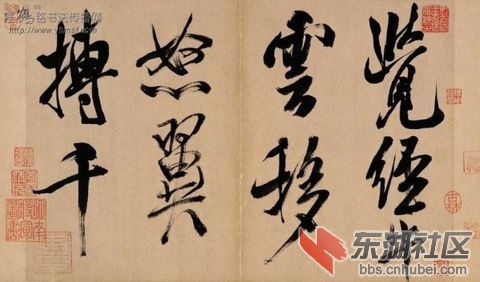 覺經牛
雲移
怒翼
搏千
东湖社区
bbs.cnhubei.com